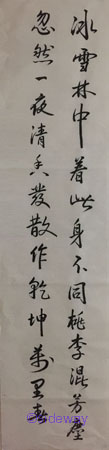 冰雪林中着此身不同桃李混芳塵
忽然一夜清香發散作乾坤萬里春